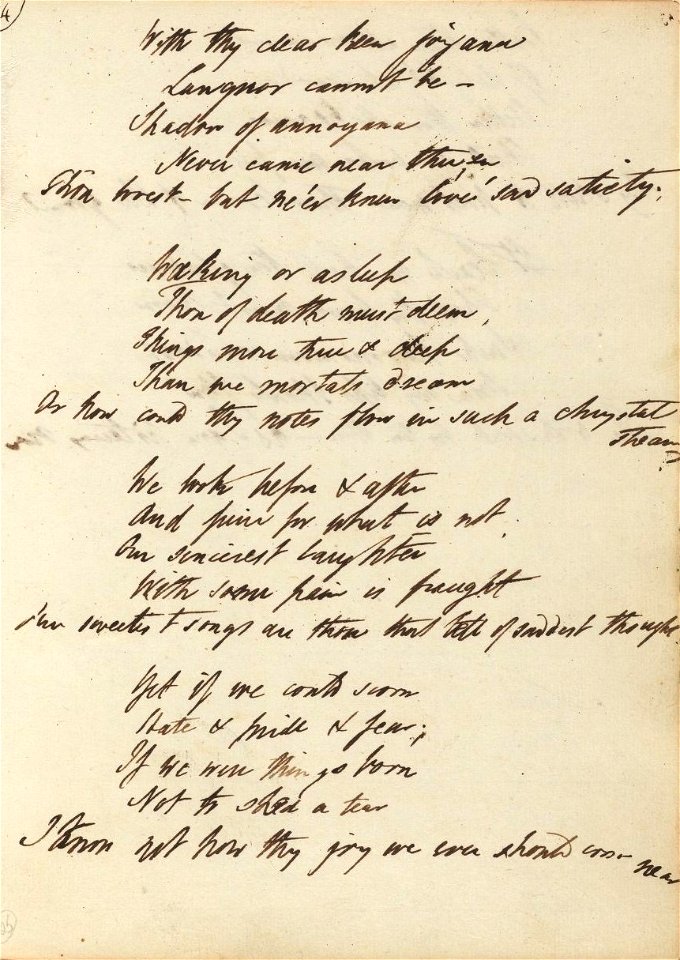 4
With thy clear keen joyance
Languor cannot be –
Shadow of annoyance
Never came near thee
Thou lovest – but ne'er knew love's sad satiety.
Waking or asleep
Thou of death must deem,
Things more true & deep
Than we mortals dream
Or how could thy notes flow in such a chrystal
stream
We look before & after
And pine for what is not
Our sincerest laughter
With some pain is fraught
Our sweetest songs are those that tell of saddest thought
Yet if we could scorn
Hate & pride & fear;
If we were things born
Not to shed a tear
I know not how thy joy we ever should come
near